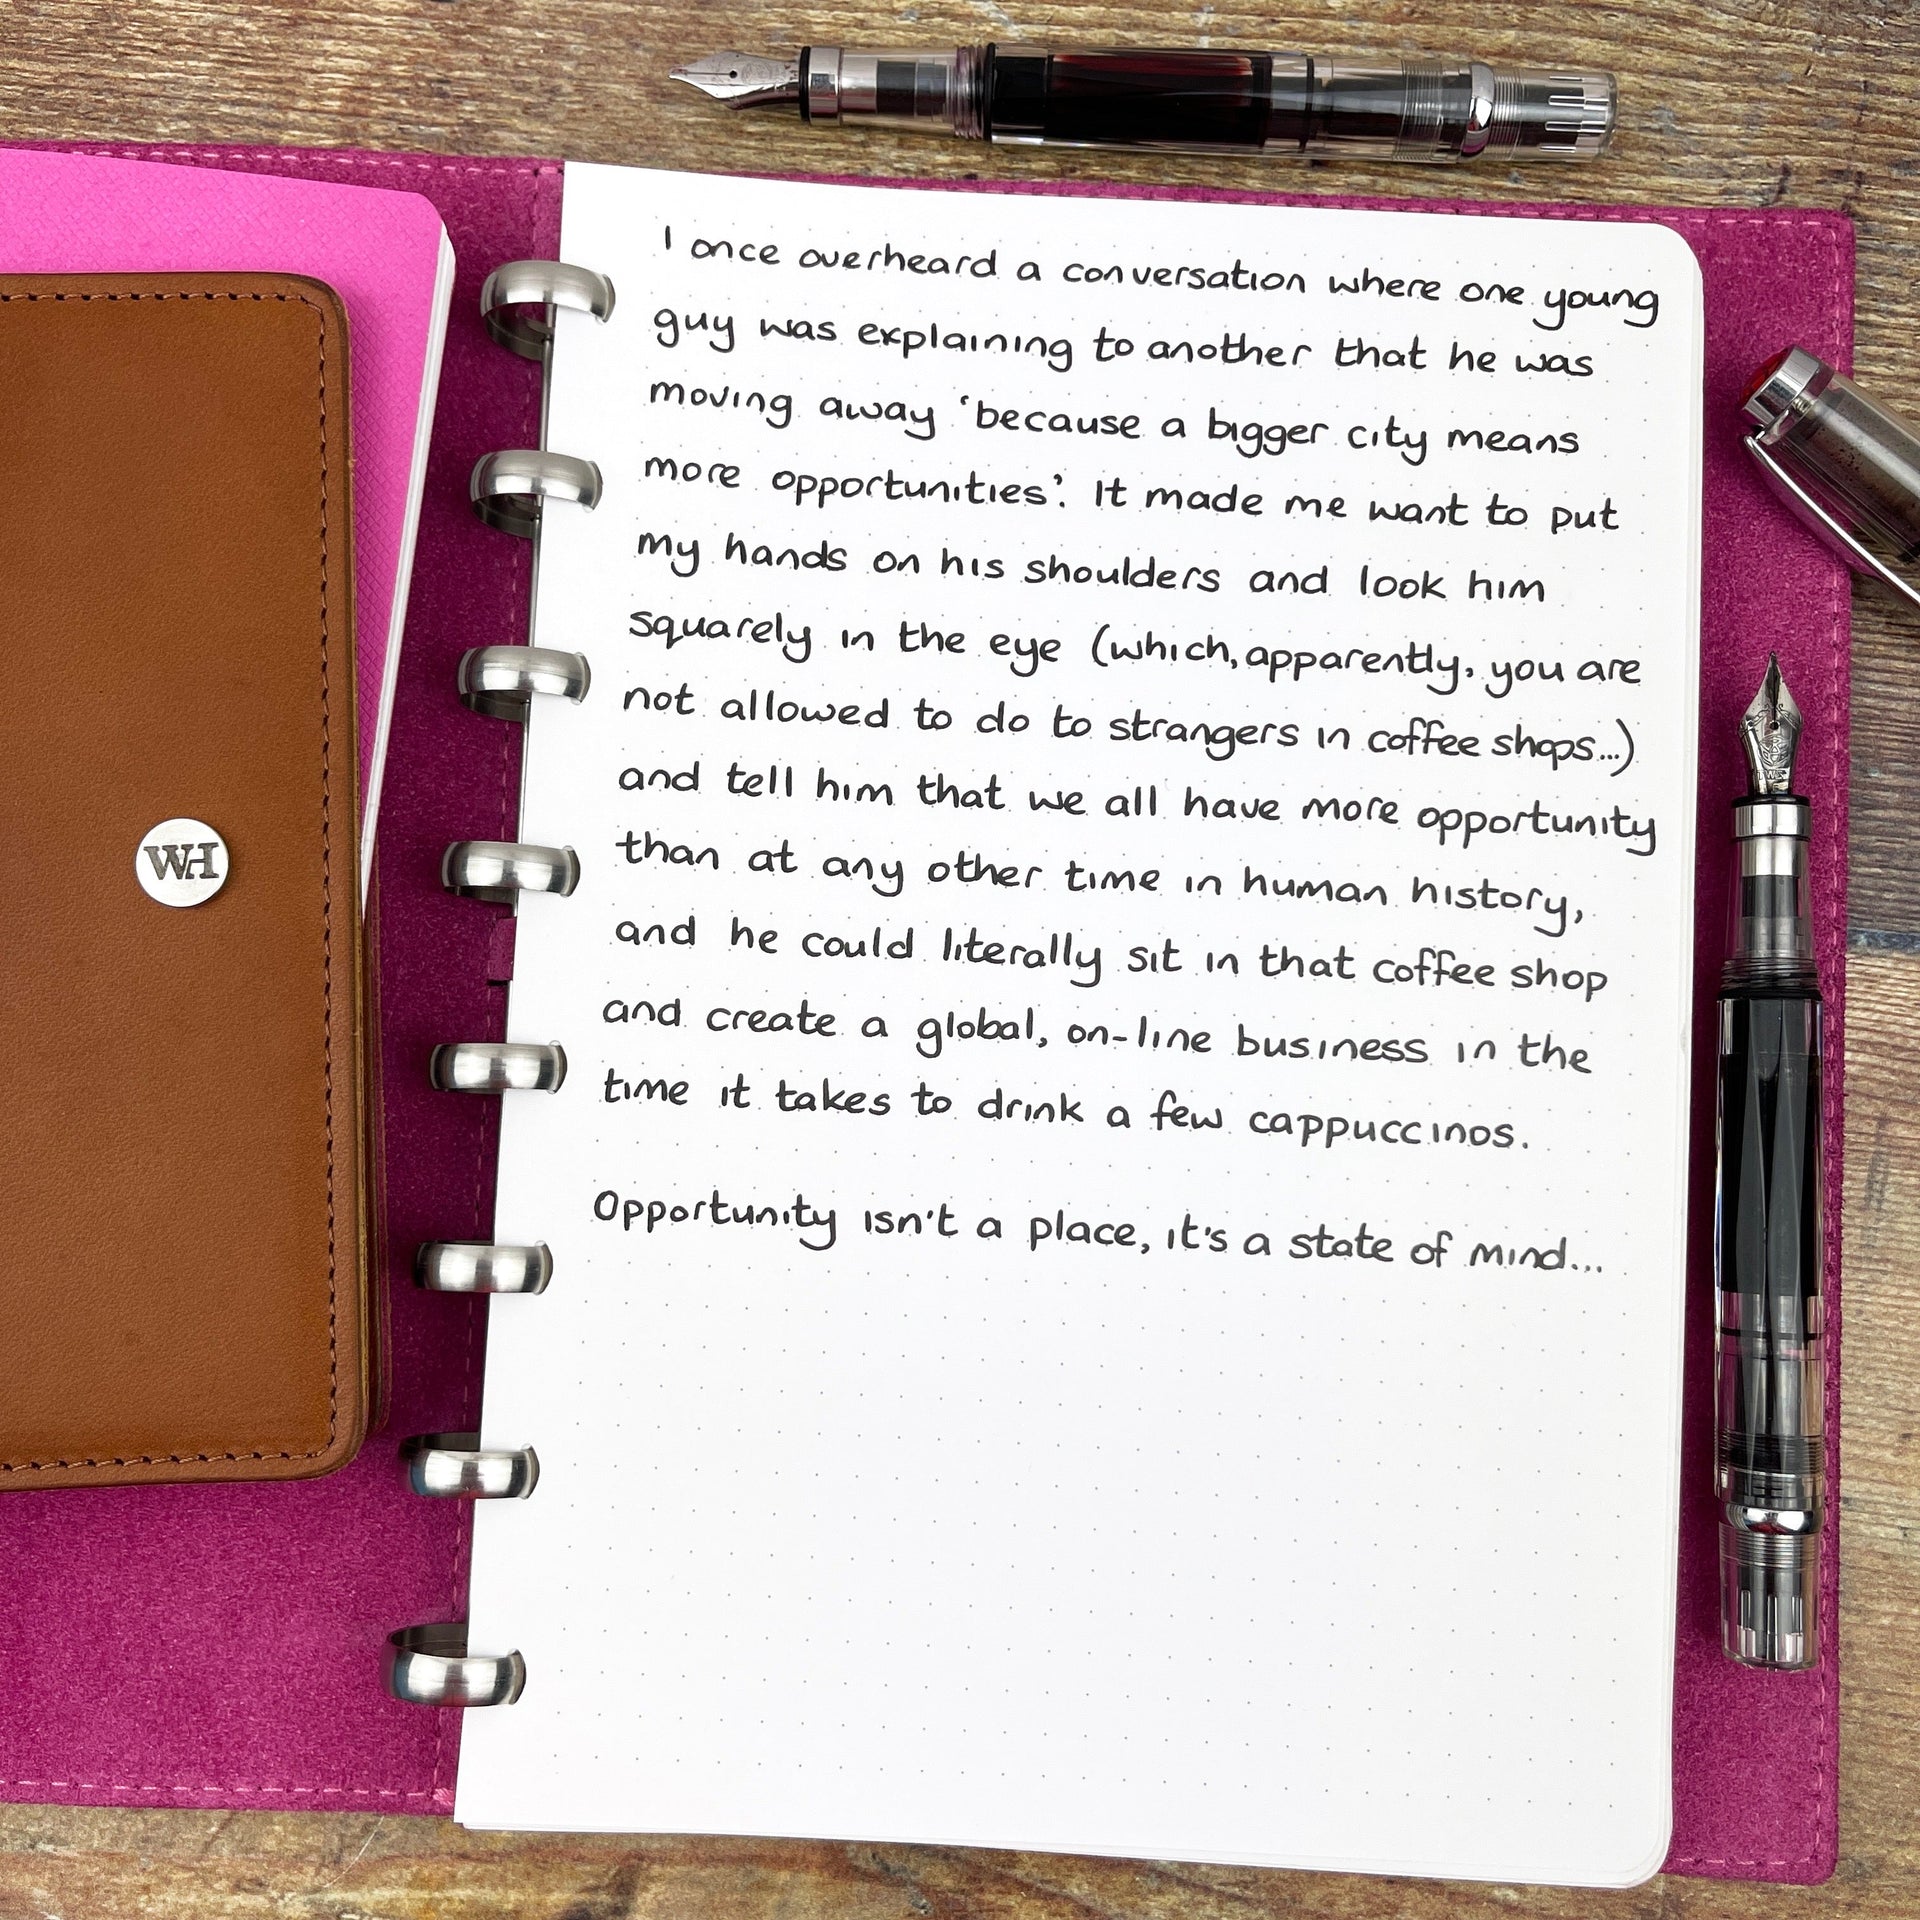 I once overheard a conversation where one young
guy was explaining to another that he was
moving away 'because a bigger city means
more opportunities'. It made me want to put
my hands on his shoulders and look him
squarely in the eye (which, apparently, you are
not allowed to do to strangers in coffee shops...)
and tell him that we all have more opportunity
than at any other time in human history,
and he could literally sit in that coffee shop
and create a global, on-line business in the
time it takes to drink a few cappuccinos.
Opportunity isn't a place, it's a state of mind...
WH